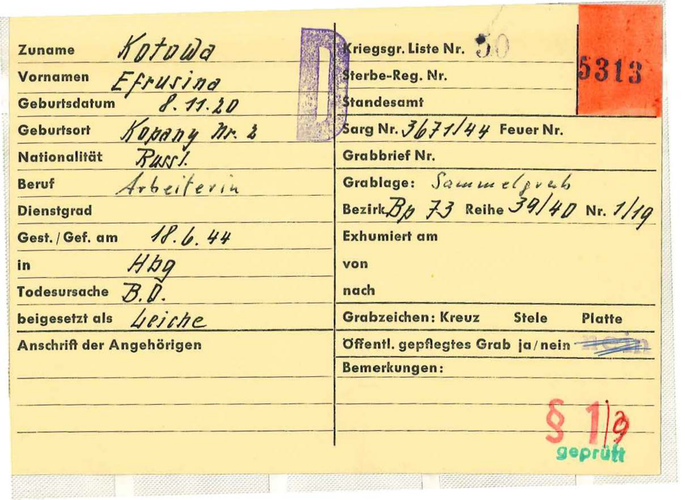 Zuname Kotowa
Vornamen Efrusina
Geburtsdatum 8.11.20
Geburtsort Kopany Nr. 2
Nationalität Russl.
Beruf Arbeiterin
Dienstgrad
Gest./Gef. am 18.6.44
in Hbg
Todesursache B.O.
beigesetzt als Leiche
Anschrift der Angehörigen
D
Kriegsgr. Liste Nr. 50
5313
Sterbe-Reg. Nr.
Standesamt
Sarg Nr. 3671/44 Feuer Nr.
Grabbrief Nr.
Grablage: Sammelgrab
Bezirk Bp 73 Reihe 39/40 Nr. 1/19
Exhumiert am
von
nach
Grabzeichen: Kreuz Stele Platte
Öffentl. gepflegtes Grab ja/nein nein
Bemerkungen:
§ 1/9
geprüft